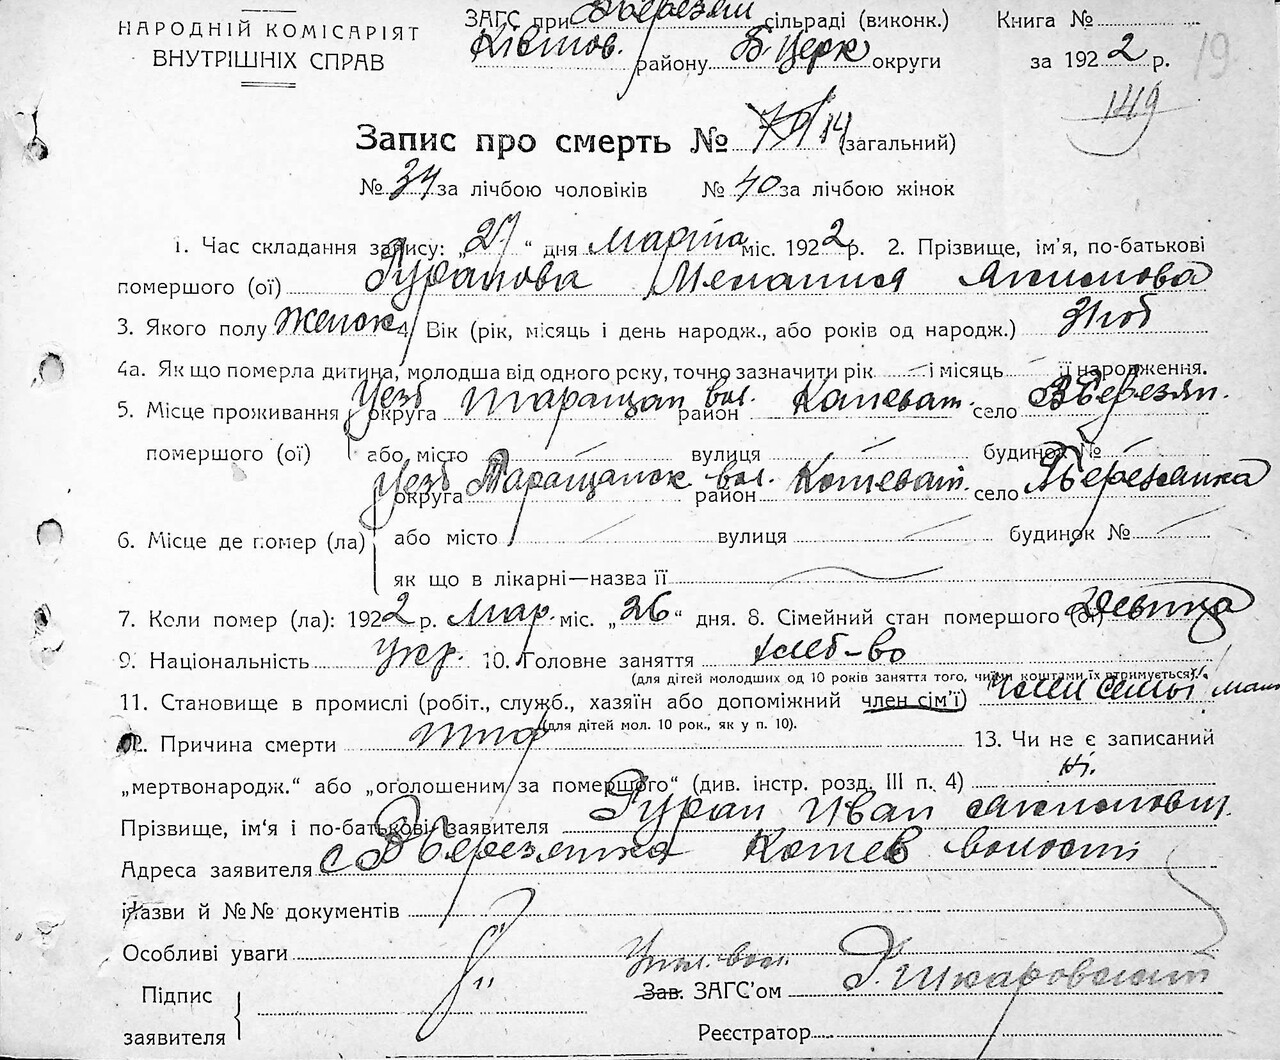 НАРОДНІЙ КОМІСАРІЯТ
ВНУТРІШНІХ СПРАВ
ЗАГС при Збережян сільраді (виконк.)
району Б. Церк округи
Книга №
за 1922 р.
19
149
Запис про смерть № 14 (загальний)
№ 34 за лічбою чоловіків № 40 за лічбою жінок
1. Час складання запису: „27“ дня Марта міс. 1922 р. 2. Прізвище, ім'я, по-батькові
помершого (ої) Гуранова Мелания Якимова
3. Якого полу женск 4. Вік (рік, місяць і день народж., або років од народж.)
4а. Як що померла дитина, молодша від одного року, точно зазначити рік — і місяць — її народження.
5. Місце проживання округа Уезд Таращан вол. район Кошеват. село Збережян.
помершого (ої) або місто вулиця будинок №
округа Уезд Таращанск вол. район Кошеват. село Збережянка
6. Місце де помер (ла) або місто вулиця будинок №
як що в лікарні—назва її
7. Коли помер (ла): 1922 р. мар. міс. „26“ дня. 8. Сімейний стан помершого (ої) Девица
9. Національність укр. 10. Головне заняття хлеб-во
(для дітей молодших од 10 років заняття того, чиїми коштами їх втримується)
11. Становище в промислі (робіт., служб., хазяїн або допоміжний член сім'ї) член семьи
(для дітей мол. 10 рок., як у п. 10).
12. Причина смерти тиф 13. Чи не є записаний
„мертвонародж.“ або „оголошеним за помершого“ (див. інстр. розд. III п. 4) ні.
Прізвище, ім'я і по-батькові заявителя Гуран Иван Якимович
Адреса заявителя с Збережянка Кошев волости
Назви й №№ документів
Особливі уваги
Підпис
заявителя
Зав. ЗАГС'ом
Реєстратор